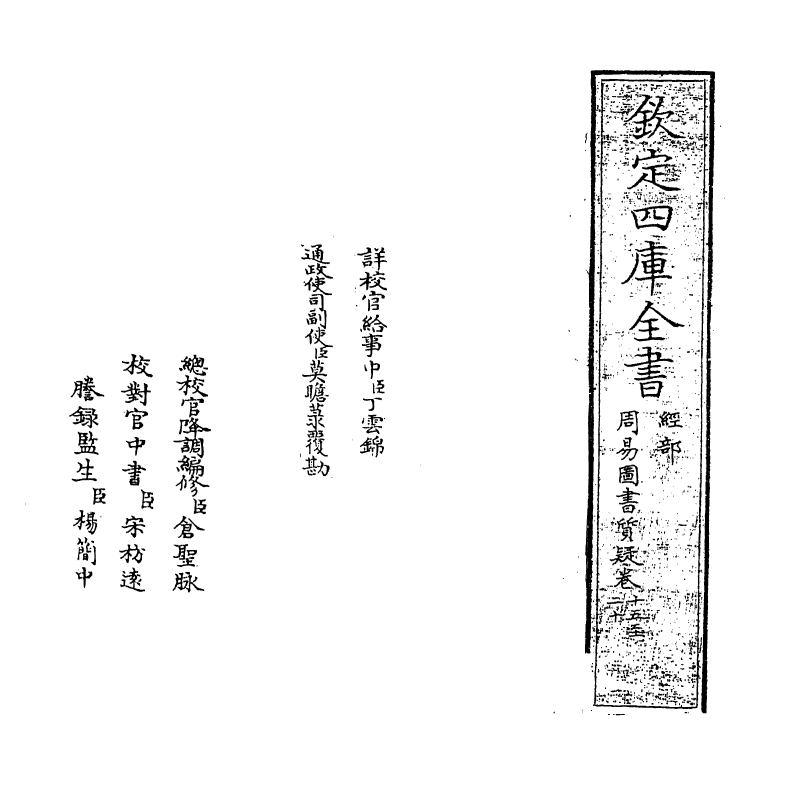 欽定四庫全書
經部
周易圖書質疑卷十五至二十
詳校官給事中臣丁雲錦
通政使司副使臣莫瞻菉覆勘
總校官降調編修臣倉聖脉
校對官中書臣宋枋遠
謄録監生臣楊簡中